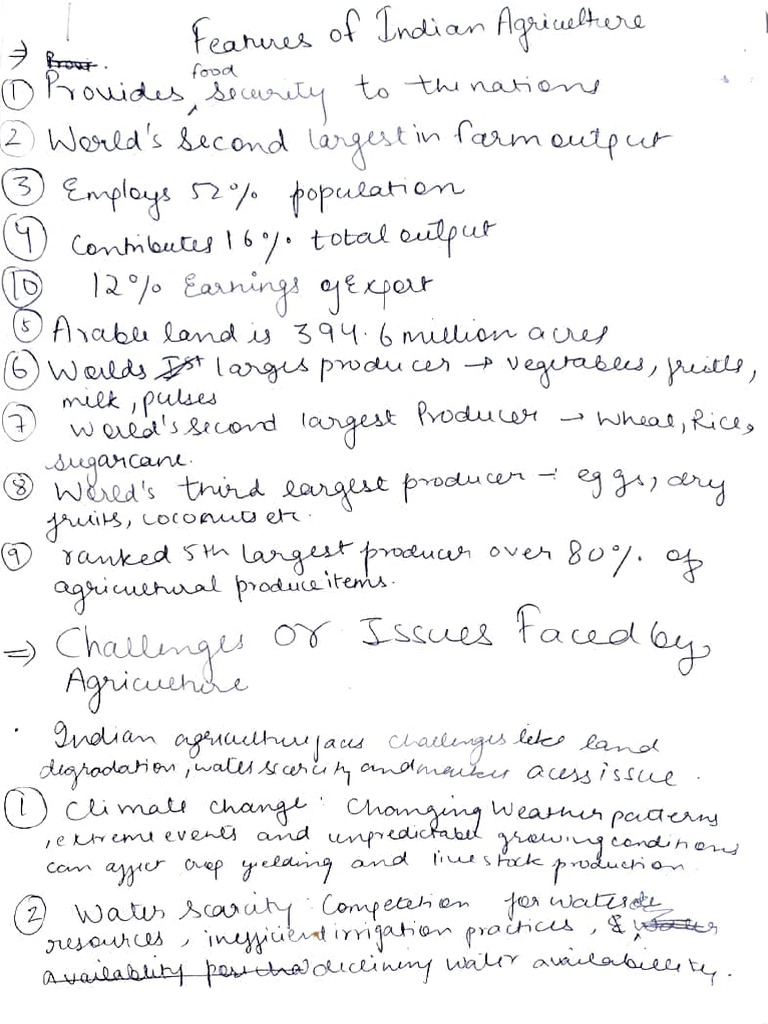 Features of Indian Agriculture
⇒ Prour.
① Provides food security to the nations
② World's Second largest in farm output
③ Employs 52% population
④ Contributes 16% total output
⑩ 12% Earnings of Export
⑤ Arable land is 394.6 million acres
⑥ Worlds Ist larges producer → vegetables, fruits,
milk, pulses
⑦ World's second largest Producer → Wheat, Rice,
sugarcane.
⑧ World's third largest producer → eggs, dry
fruits, coconuts etc.
⑨ ranked 5th largest producer over 80% of
agricultural produce items.
⇒ Challenges or Issues Faced by
Agriculture
· Indian agriculture faces challenges like land
degradation, water scarcity and market acess issue.
① Climate change: Changing Weather patterns
, extreme events and unpredictable growing conditions
can affect crop yielding and livestock production
② Water scarcity: Competetion for water
resources, inefficient irrigation practices, &
availability declining water availability.